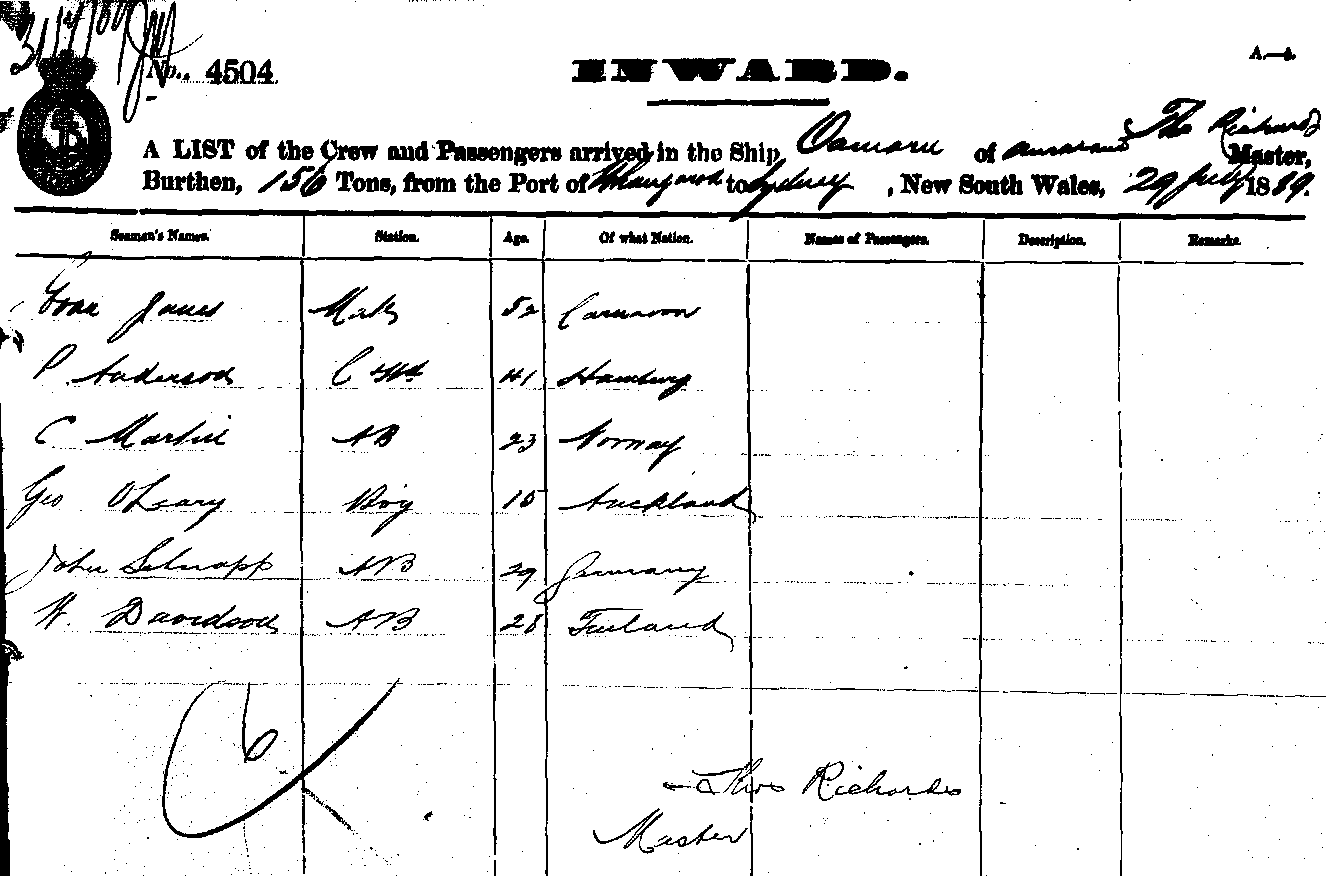 No. 4504
INWARD.
A.—4.
A LIST of the Crew and Passengers arrived in the Ship Oamaru of Thos Richards Master,
Burthen, 156 Tons, from the Port of to Sydney, New South Wales, 29 July 1889.
Seamen's Names. Station. Age. Of what Nation. Names of Passengers. Description. Remarks.
Jones Mate 52 Carnarvon
P Anderson 41 Hamburg
C Martin AB 23 Norway
Geo O'Leary Boy 15 Auckland
John Schnapp AB 29 Germany
W. Davidson AB 28 Finland
6
Thos Richards
Master